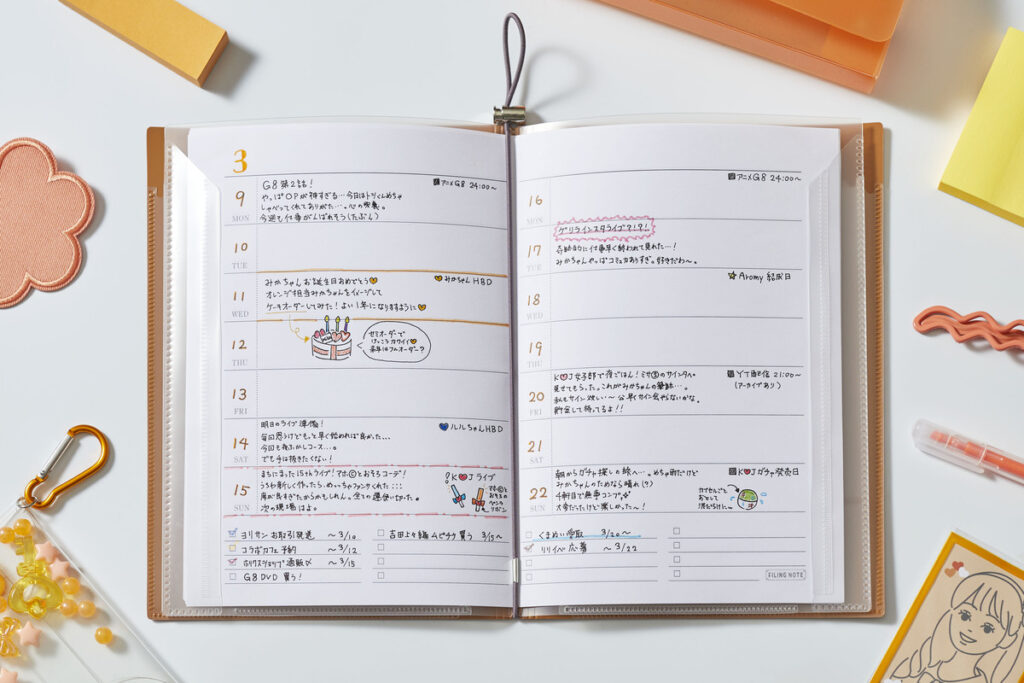 3
9 MON
G8 第2話！
アニメG8 24:00〜
やっぱOPが神すぎる…今日はトリくんめちゃ
しゃべってくれてありがた…。心の栄養。
今週も仕事がんばれそう（たぶん）
10 TUE
11 WED
みかちゃんお誕生日おめでとう
みかちゃんHBD
オレンジ担当みかちゃんをイメージして
ケーキオーダーしてみた！よい1年になりますように
12 THU
セミオーダーで
けっこうカワイイ
来年はフルオーダー？
13 FRI
14 SAT
明日のライブ準備！
ルルちゃんHBD
毎回思うけどもっと早く始めれば良かった…
今回も夜ふかしコース…。
でも手は抜きたくない！
15 SUN
まちにまった15thライブ！アホ©とおそろコーデ！
K♥Jライブ
うちわ新しく作ったら、めっちゃファンサくれた…
席が良すぎたからかもしれん。全ての運使いきった。
次の現場はよ。
おそろの
リボン
ヨリサン お取引発送 〜3/10
コラボカフェ予約 〜3/12
通販〆 〜3/15
G8 DVD 買う！
吉田よう編 ムビチケ 買う 3/15〜
16 MON
アニメG8 24:00〜
17 TUE
ゲリラインスタライブ？！？！
奇跡的に仕事早く終わって見れた…！
みかちゃんやっぱコミュ力ありすぎ。好きだわ〜。
18 WED
Aromy 結成日
19 THU
20 FRI
K♥J女子部で夜ごはん！
YT配信 21:00〜
（アーカイブあり）
見せてもらった。これがみかちゃんの筆跡…。
私もサイン欲しい〜 公式サイン会やらないかな。
貯金して待ってるよ！！
21 SAT
22 SUN
朝からガチャ探しの旅へ…。めちゃ雨だけど
K♥Jガチャ発売日
みかちゃんのためなら晴れ（？）
4軒目で無事コンプ
大変だったけど楽しかった〜！
カプセルごと
おとして
くまぬい受取 3/20〜
リリイベ応募 〜3/22
FILING NOTE